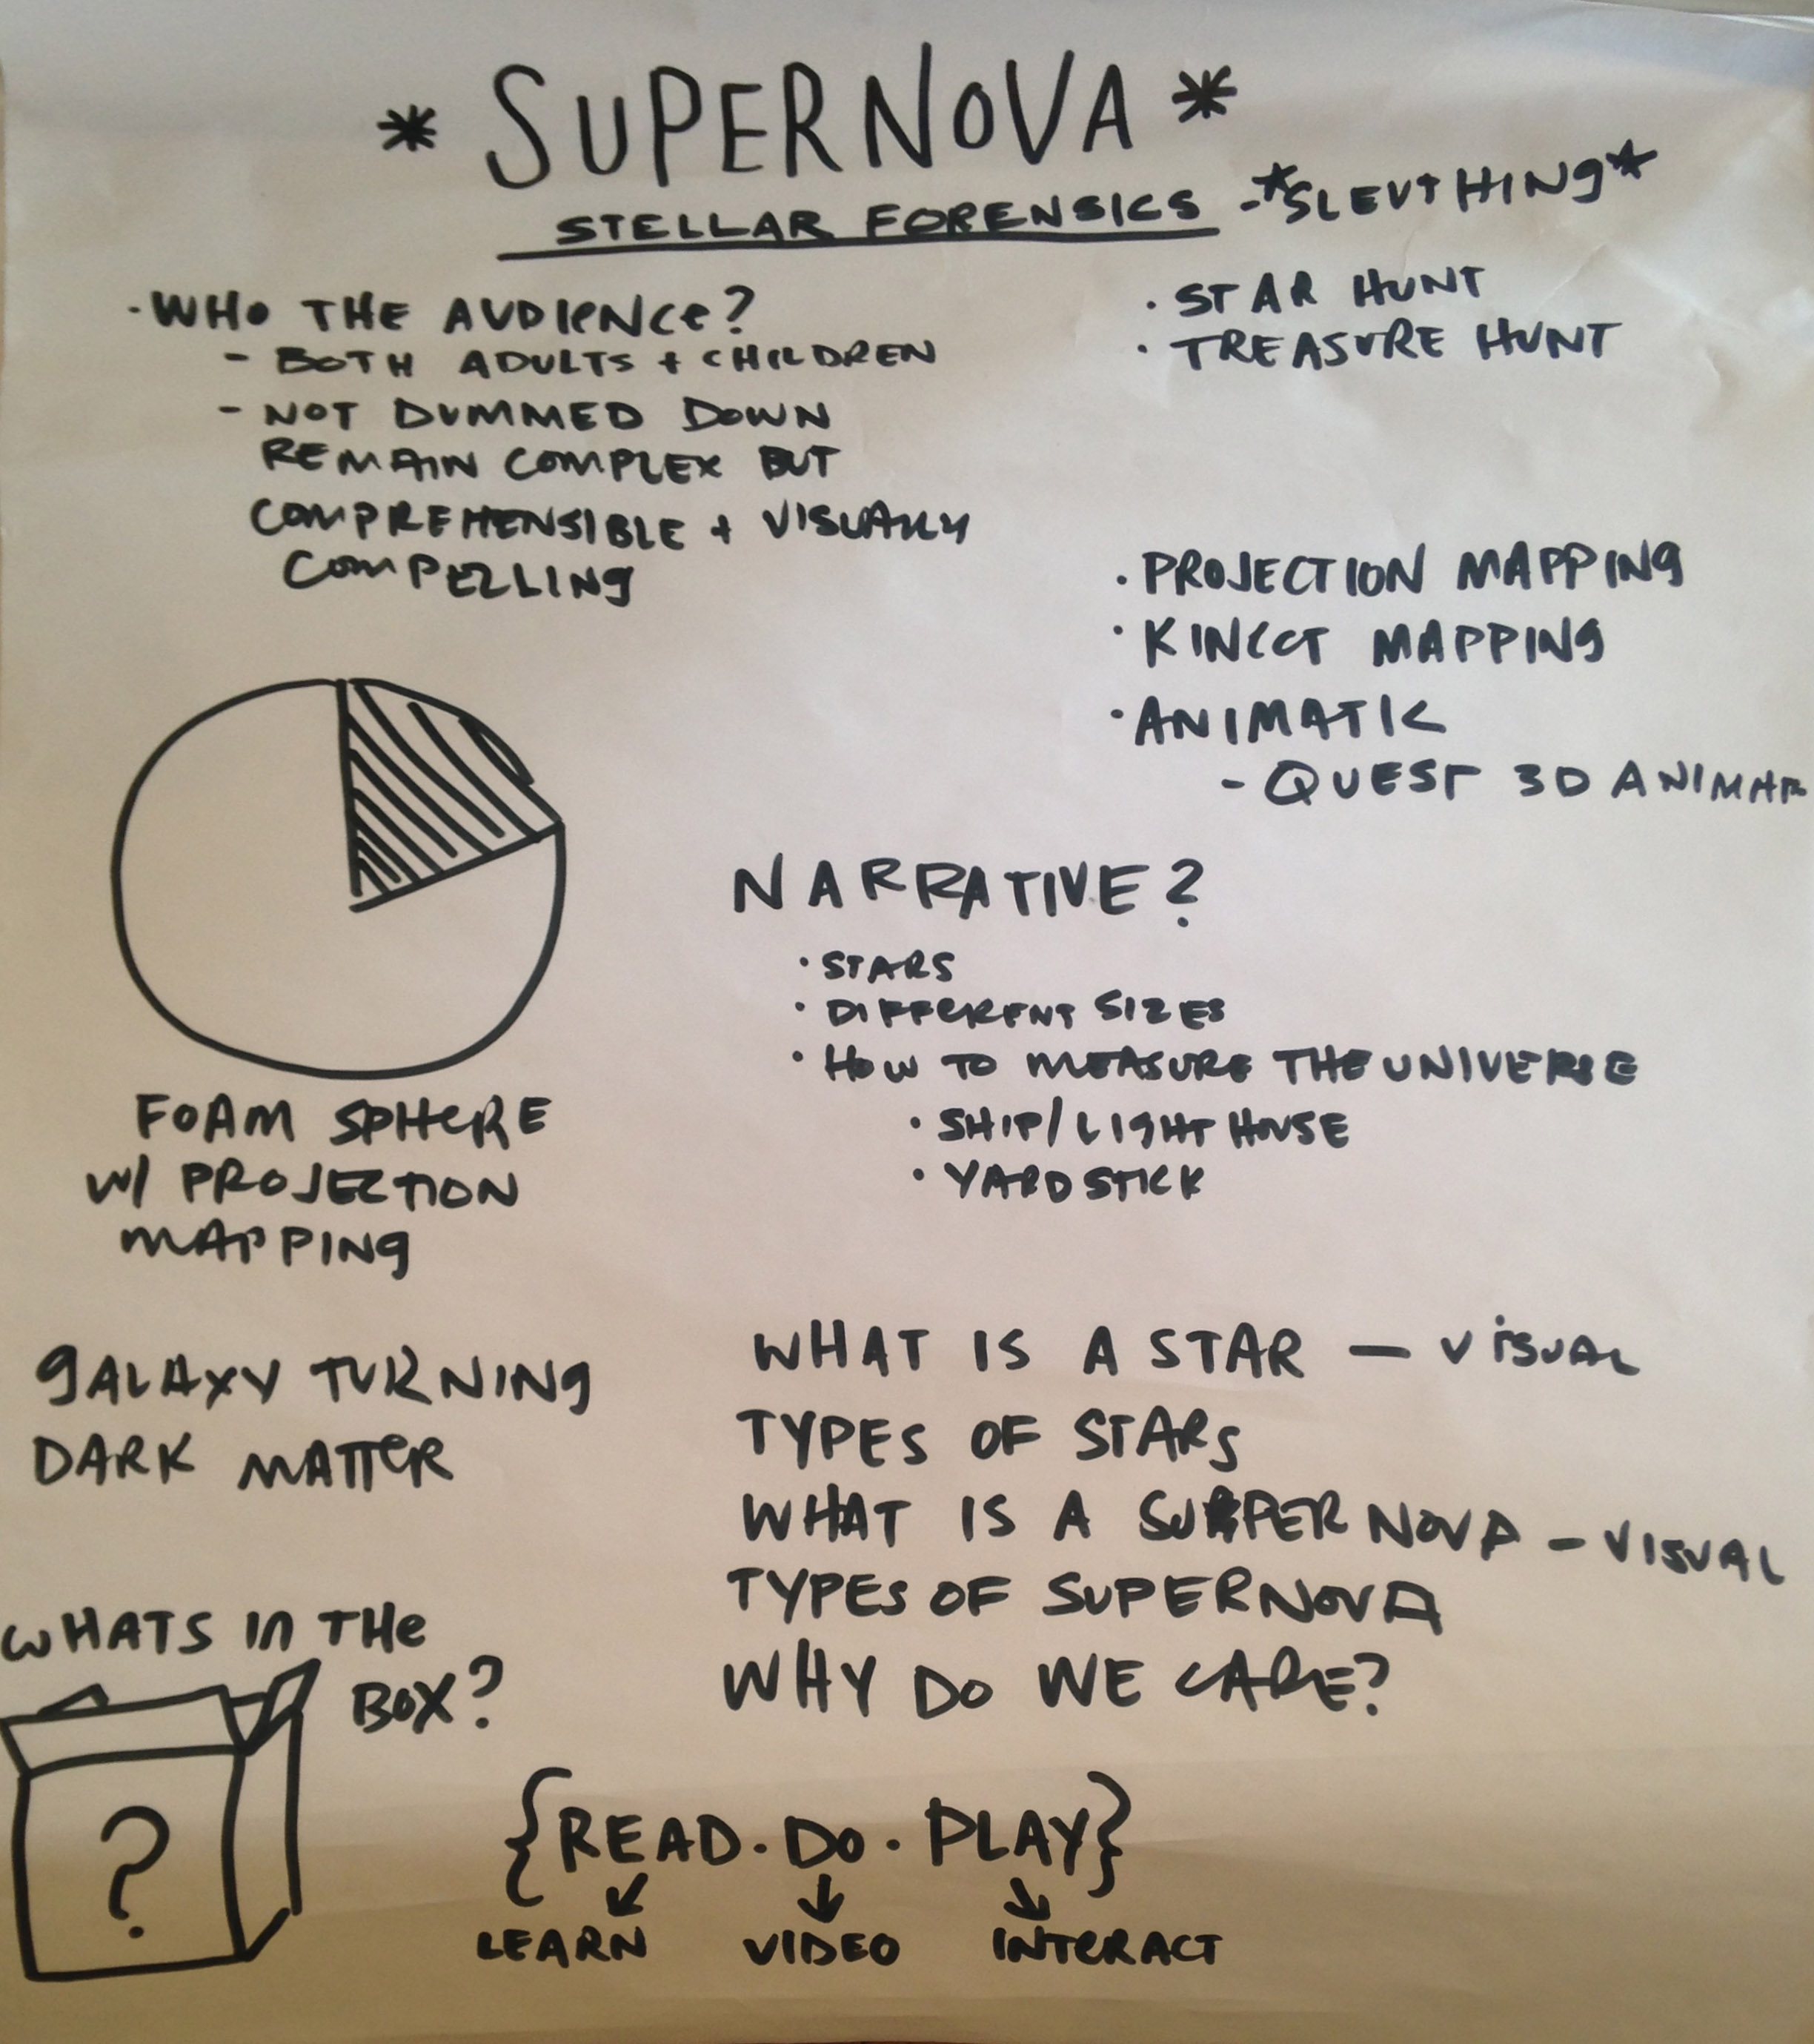 * SUPERNOVA *
STELLAR FORENSICS - *SLEUTHING*
· WHO THE AUDIENCE?
- BOTH ADULTS + CHILDREN
- NOT DUMMED DOWN
REMAIN COMPLEX BUT
COMPREHENSIBLE + VISUALLY
COMPELLING
· STAR HUNT
· TREASURE HUNT
· PROJECTION MAPPING
· KINECT MAPPING
· ANIMATIC
- QUEST 3D
FOAM SPHERE
W/ PROJECTION
MAPPING
NARRATIVE?
· STARS
· DIFFERENT SIZES
· HOW TO MEASURE THE UNIVERSE
· SHIP/LIGHT HOUSE
· YARD STICK
GALAXY TURNING
DARK MATTER
WHAT IS A STAR — VISUAL
TYPES OF STARS
WHAT IS A SUPERNOVA - VISUAL
TYPES OF SUPERNOVA
WHY DO WE CARE?
WHATS IN THE
BOX?
?
{READ · DO · PLAY}
LEARN VIDEO INTERACT